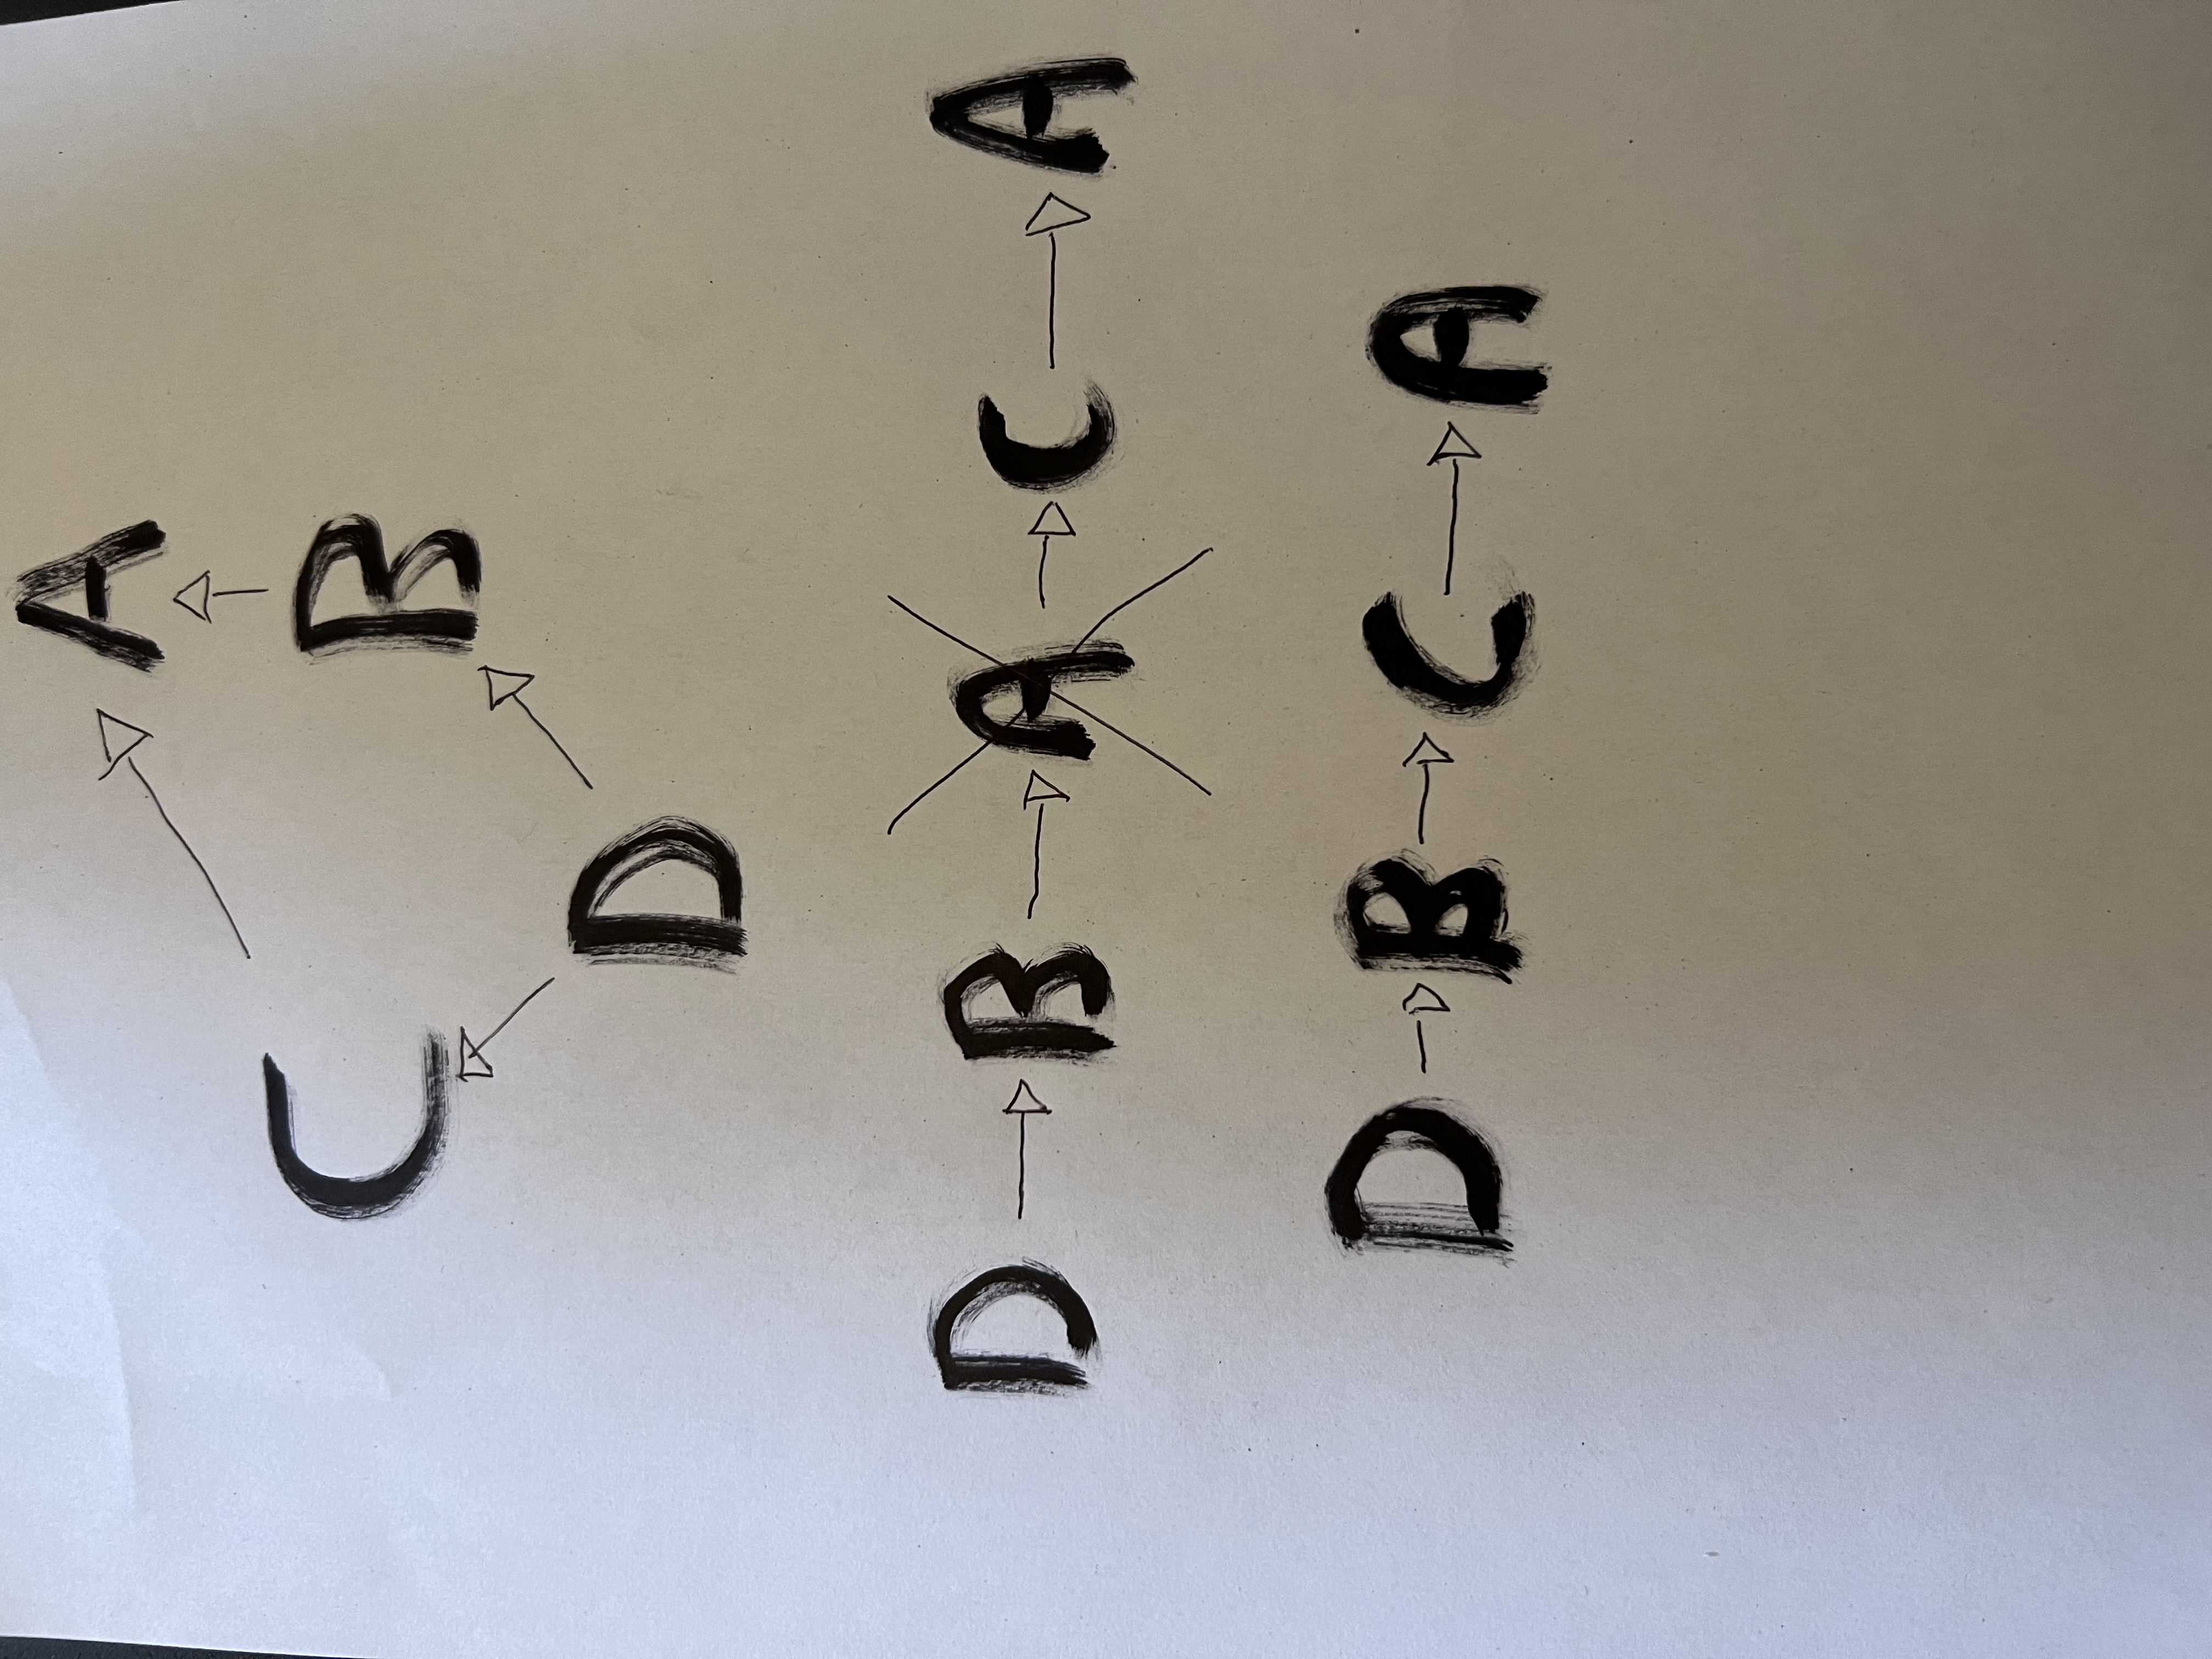 A
C
B
D
D B A C A
D B C A